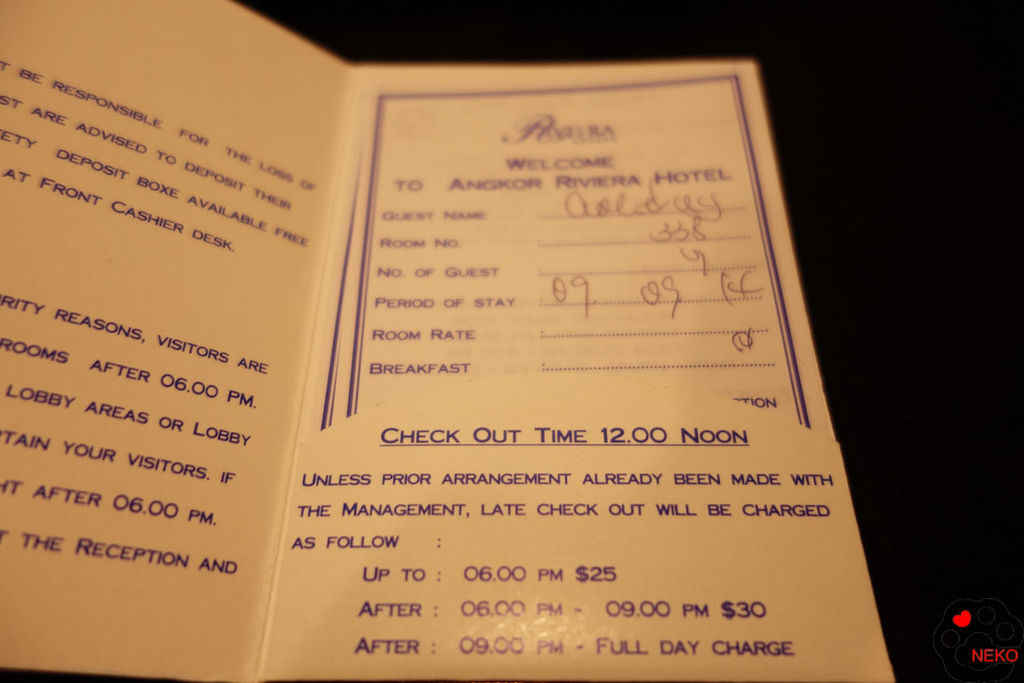 T BE RESPONSIBLE FOR THE LOSS OF
ST ARE ADVISED TO DEPOSIT THEIR
ETY DEPOSIT BOXE AVAILABLE FREE
AT FRONT CASHIER DESK.
RITY REASONS, VISITORS ARE
ROOMS AFTER 06.00 PM.
LOBBY AREAS OR LOBBY
TAIN YOUR VISITORS. IF
HT AFTER 06.00 PM.
T THE RECEPTION AND
RIVIERA
WELCOME
TO ANGKOR RIVIERA HOTEL
GUEST NAME
ROOM NO. 338
NO. OF GUEST
PERIOD OF STAY 09. 09
ROOM RATE
BREAKFAST
TION
CHECK OUT TIME 12.00 NOON
UNLESS PRIOR ARRANGEMENT ALREADY BEEN MADE WITH
THE MANAGEMENT, LATE CHECK OUT WILL BE CHARGED
AS FOLLOW :
UP TO : 06.00 PM $25
AFTER : 06.00 PM - 09.00 PM $30
AFTER : 09.00 PM - FULL DAY CHARGE
NEKO